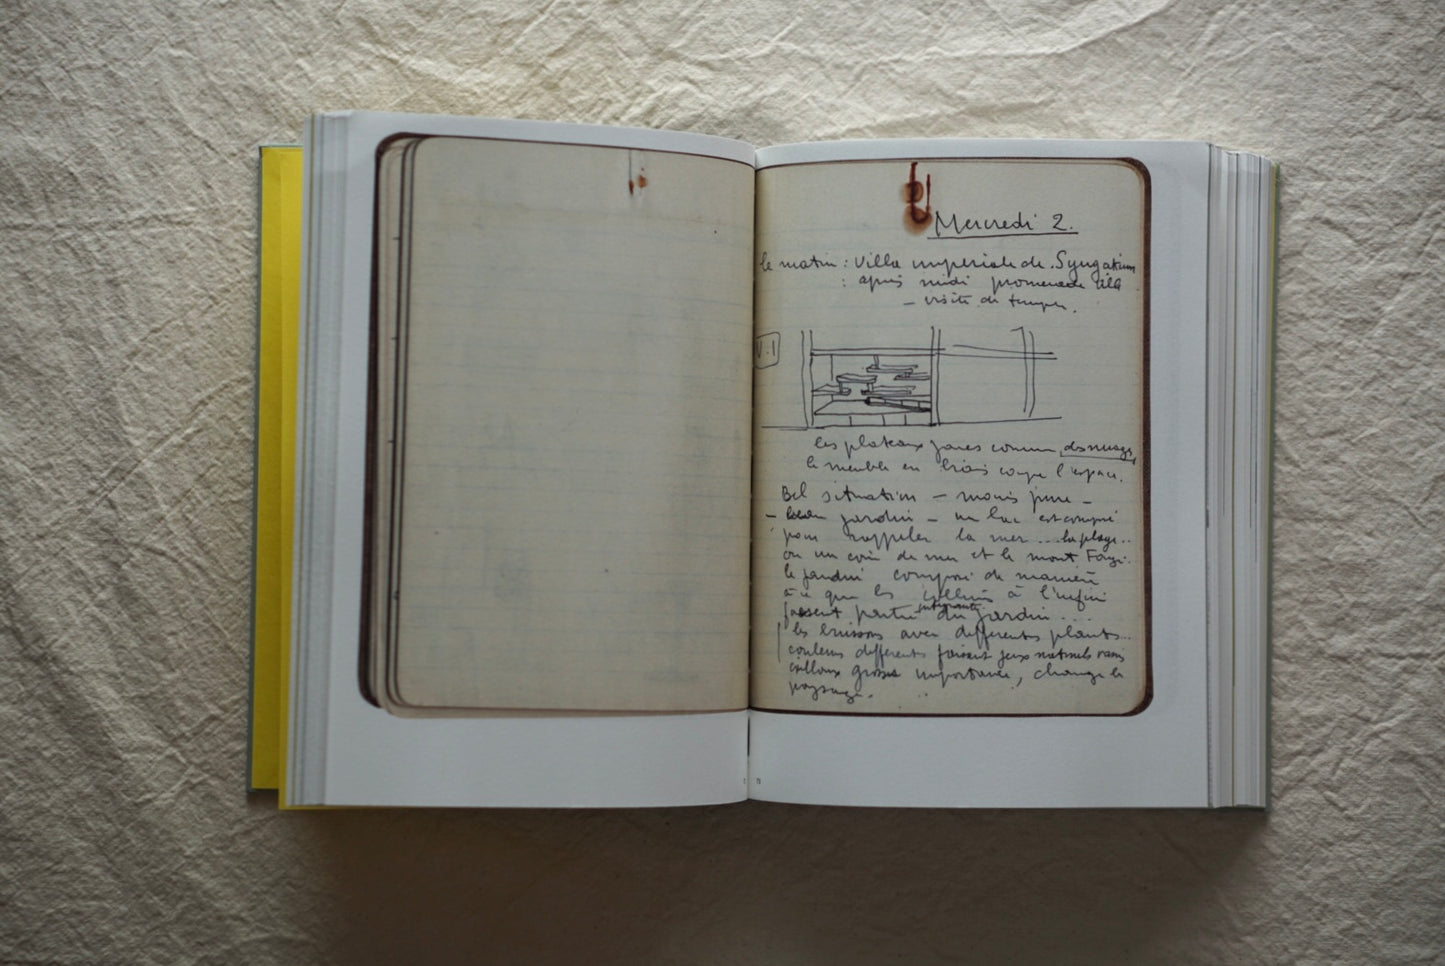 Mercredi 2.
le matin : Villa imperiale de Syugakuin
: après midi promenade villa
– visite de temples.
V.1
les plateaux jaunes comme des nuages,
le meuble en bois coupe l'espace.
Bel situation – mais pure –
– beau jardin – un lac est composé
pour rappeler la mer ... la plage ..
ou un coin de mer et le mont Fouji.
le jardin composé de manière
à ce que les collines à l'infini
fassent partie intégrante du jardin ...
les buissons avec differents plants ..
couleurs differents faisant jeux naturels sans
cailloux grosse importance, change le
paysage.